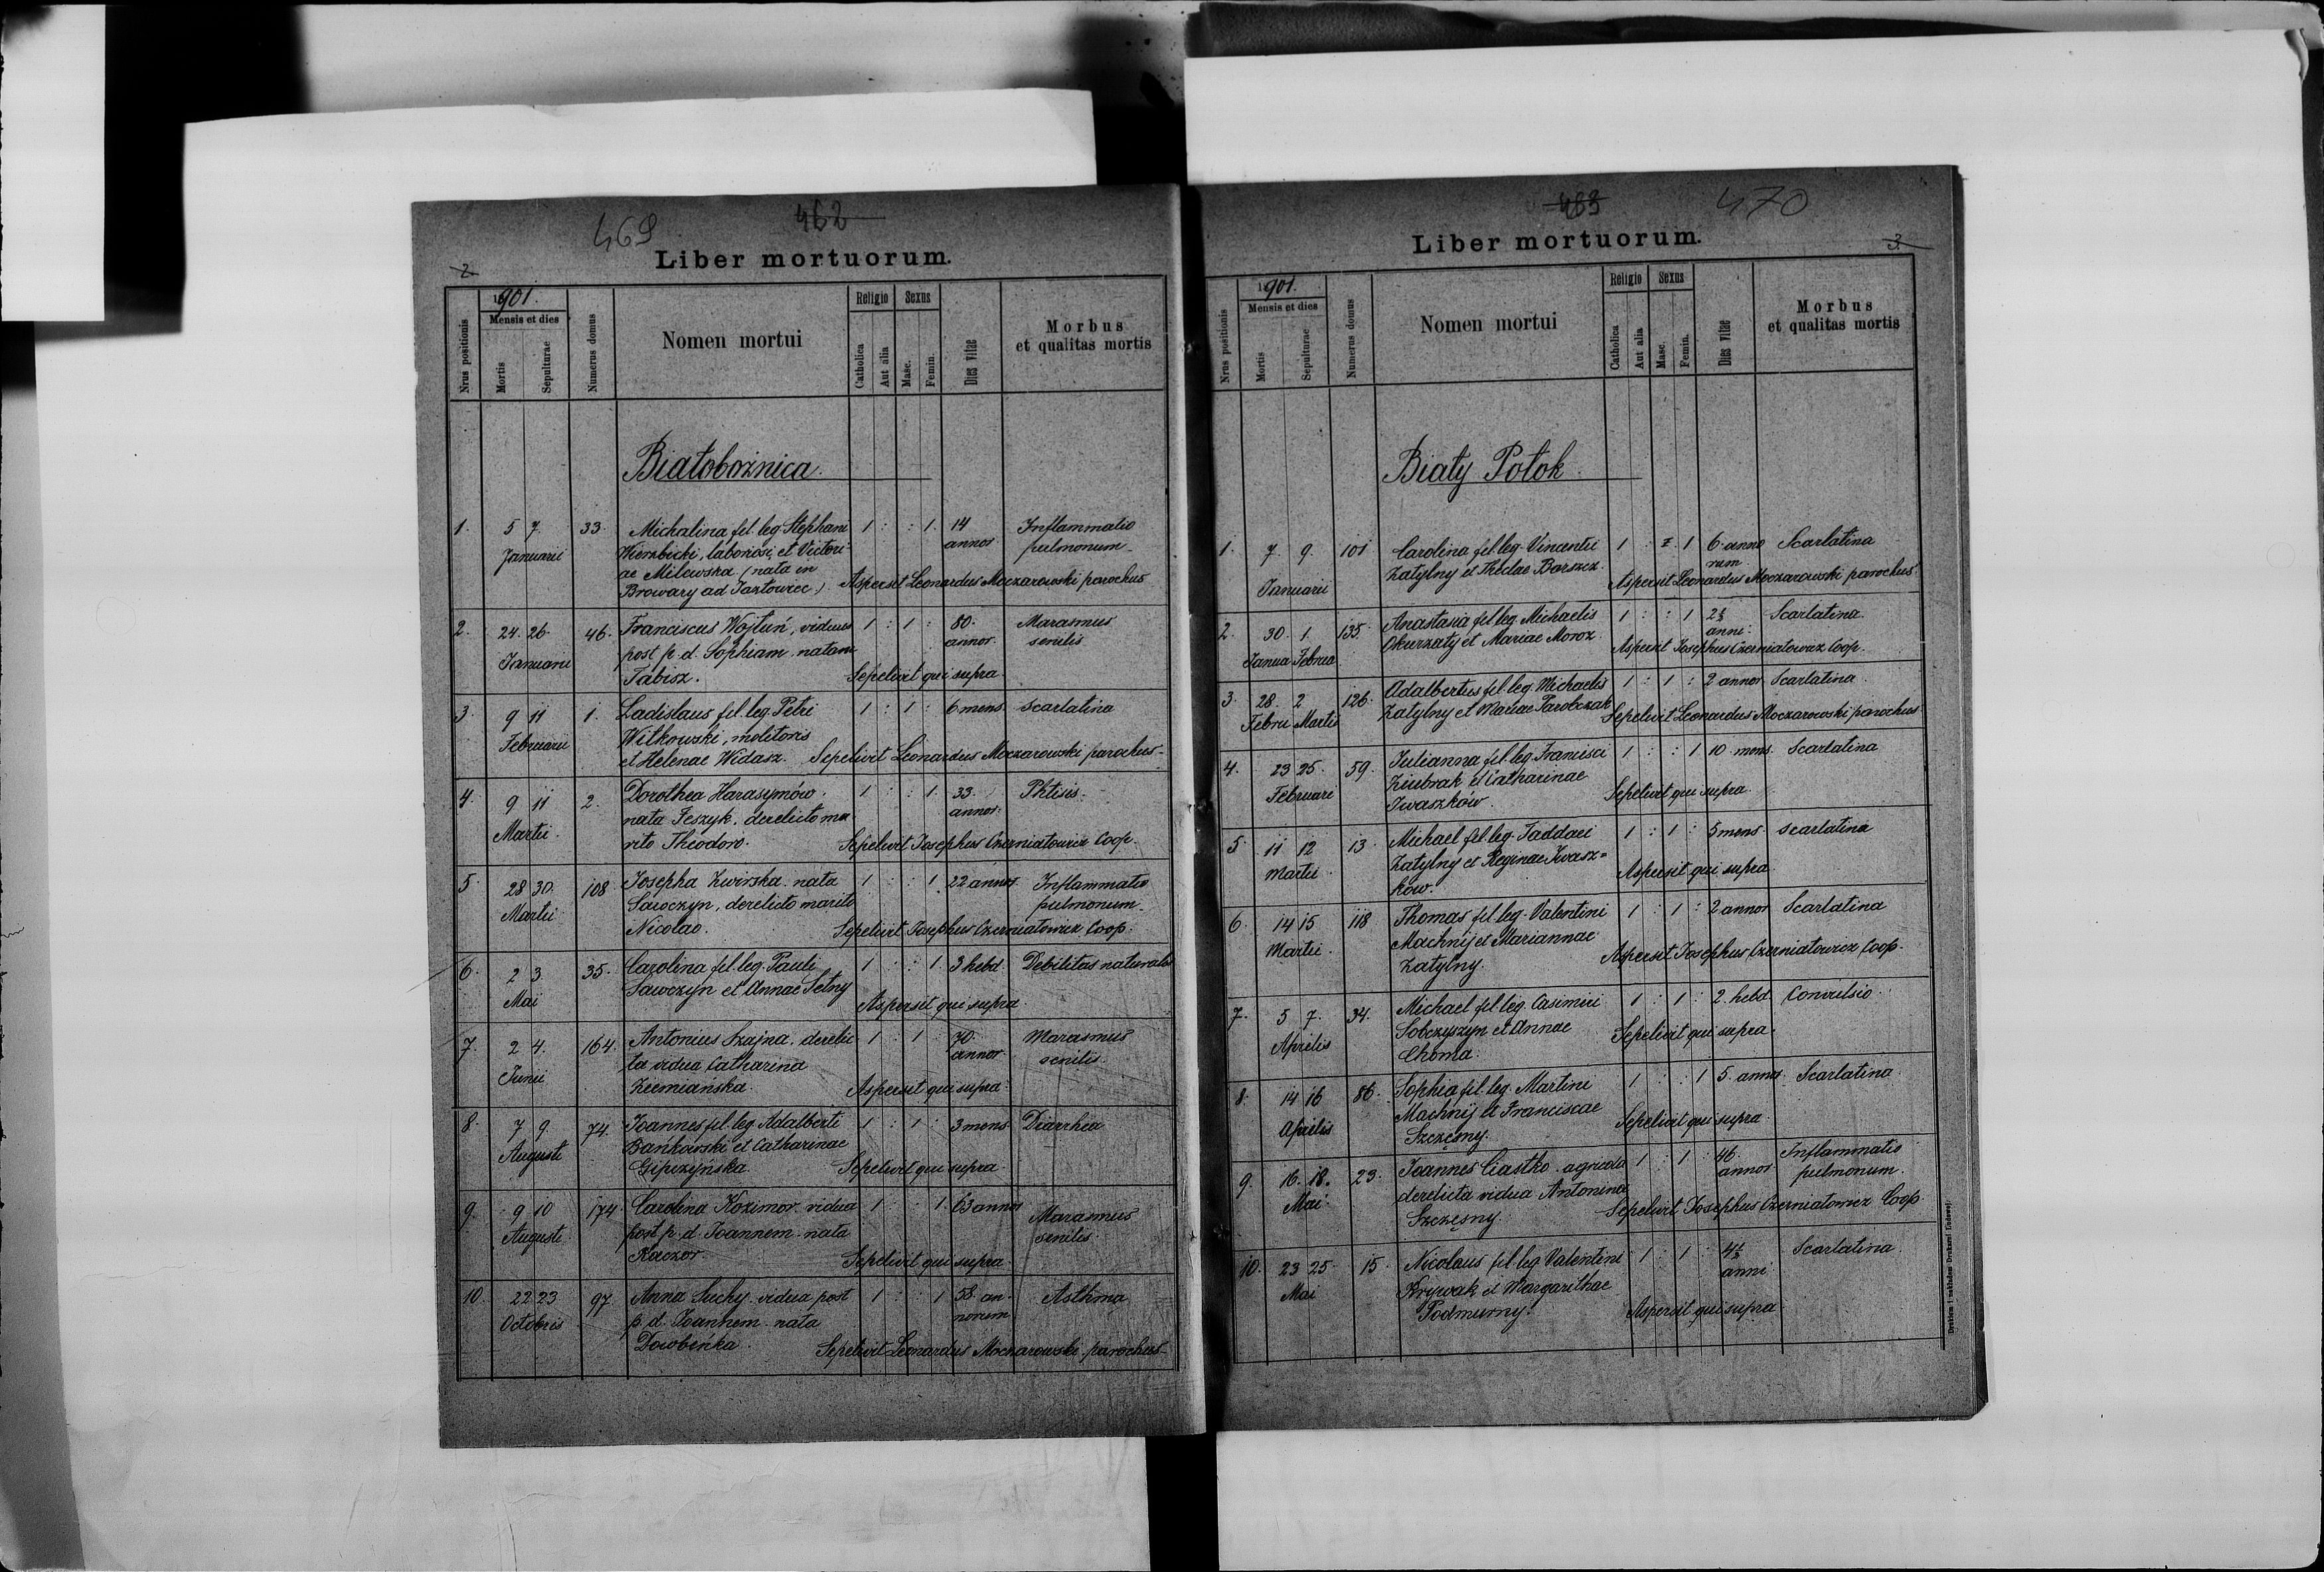 469 462
Liber mortuorum.
2
1901.
Nrus positionis
Mensis et dies
Mortis
Sepulturae
Numerus domus
Nomen mortui
Religio
Catholica
Aut alia
Sexus
Masc.
Femin.
Dies vitae
Morbus
et qualitas mortis
Białobożnica.
1. 5 7 33. Michalina fil. leg. Stephani 1 : : 1. 14 Inflammatio
Januarii Wierzbicki, laboriosi, et Victori- annor. pulmonum.
ae Milewska (nata in
Browary ad Jazłowiec) Aspersit Leonardus Moczarowski parochus
2. 24. 26. 46. Franciscus Wojtuń, viduus 1 : 1 : 80. Marasmus
Januarii post p. d. Sophiam natam annor. senilis
Tabisz. Sepelivit qui supra
3. 9 11 1. Ladislaus fil. leg. Petri 1 : 1 : 6 mens. Scarlatina
Februarii Witkowski, molitoris
et Helenae Widasz. Sepelivit Leonardus Moczarowski parochus
4. 9 11 2. Dorothea Harasymów. 1 : : 1. 33. Phtisis.
Martii. nata Feszyk. derelicto ma annor.
rito Theodoro. Sepelivit Josephus Czerniatowicz Coop.
5. 28 30. 108 Josepha Zwirska nata 1 : : 1. 22 annor. Inflammatio
Martii Sawczyn, derelicto marito pulmonum.
Nicolao. Sepelivit Josephus Czerniatowicz Coop.
6. 2 3 35. Carolina fil. leg. Pauli 1 : : 1. 3 hebd. Debilitas naturalis
Mai Sawczyn et Annae Setny
Aspersit qui supra
7. 2 4. 164. Antonius Szajna. derelic 1 : 1 : 70. Marasmus
Junii ta vidua Catharina annor. senilis.
Ziemiańska. Aspersit qui supra.
8. 7 9 74. Joannes fil. leg. Adalberti 1 : 1 : 3 mens. Diarrhea
Augusti Bańkowski et Catharinae
Gipczyńska Sepelivit qui supra
9. 9 10 174 Carolina Kozimor. vidua 1 : : 1. 63 annor Marasmus
Augusti post p. d. Joannem. nata senilis.
Kaczor. Sepelivit qui supra.
10. 22 23 97 Anna Suchy. vidua post 1 : : 1 58 an- Asthma
Octobris p. d. Joannem nata norum
Dowbeńka. Sepelivit Leonardus Moczarowski parochus
463 470
Liber mortuorum.
3.
1901.
Nrus positionis
Mensis et dies
Mortis
Sepulturae
Numerus domus
Nomen mortui
Religio
Catholica
Aut alia
Sexus
Masc.
Femin.
Dies vitae
Morbus
et qualitas mortis
Biały Potok
1. 7 9. 101 Carolina fil. leg. Vincentii 1 : : 1 6 anno Scarlatina
Januarii Zatylny et Theclae Barszcz. rum
Aspersit Leonardus Moczarowski parochus
2. 30. 1. 135. Anastasia fil. leg. Michaelis 1 : : 1 2½ Scarlatina.
Janua Februa Okurzaty et Mariae Moroz. anni.
Aspersit Josephus Czerniatowicz Coop.
3. 28. 2 126. Adalbertus fil. leg. Michaelis 1 : 1 : 2 annor Scarlatina.
Febru Martii Zatylny et Mariae Parobczak
Sepelivit Leonardus Moczarowski parochus
4. 23 25. 59. Julianna fil. leg. Francisci 1 : : 1 10 mens. Scarlatina
Februari Ziubrak et Catharinae
Iwaszków. Sepelivit qui supra.
5. 11 12 13. Michael fil. leg. Taddaei 1 : 1 : 5 mens. scarlatina
Martii. Zatylny et Reginae Iwasz=
ków. Aspersit qui supra
6. 14 15 118 Thomas fil. leg. Valentini 1 : 1 : 2 annor Scarlatina
Martii. Machnij et Mariannae
Zatylny. Aspersit Josephus Czerniatowicz Coop.
7. 5 7. 34. Michael fil. leg. Casimiri 1 : 1 : 2. hebd. Convulsio.
Aprilis Sobczyszyn et Annae
Choma. Sepelivit qui supra.
8. 14 16 86. Sophia fil. leg. Martini 1 : : 1 5. annor. Scarlatina
Aprilis Machnij et Franciscae
Szczęsny. Sepelivit qui supra.
9. 16. 18. 23. Joannes Ciastko. agricola 1 : 1 : 46. Inflammatio
Mai derelicta vidua Antonina annor. pulmonum.
Szczęsny. Sepelivit Josephus Czerniatowicz Coop
10. 23 25 15. Nicolaus fil. leg. Valentini 1 : 1 : 4½ Scarlatina.
Mai Krywak et Margarithae anni
Podmurny. Aspersit qui supra